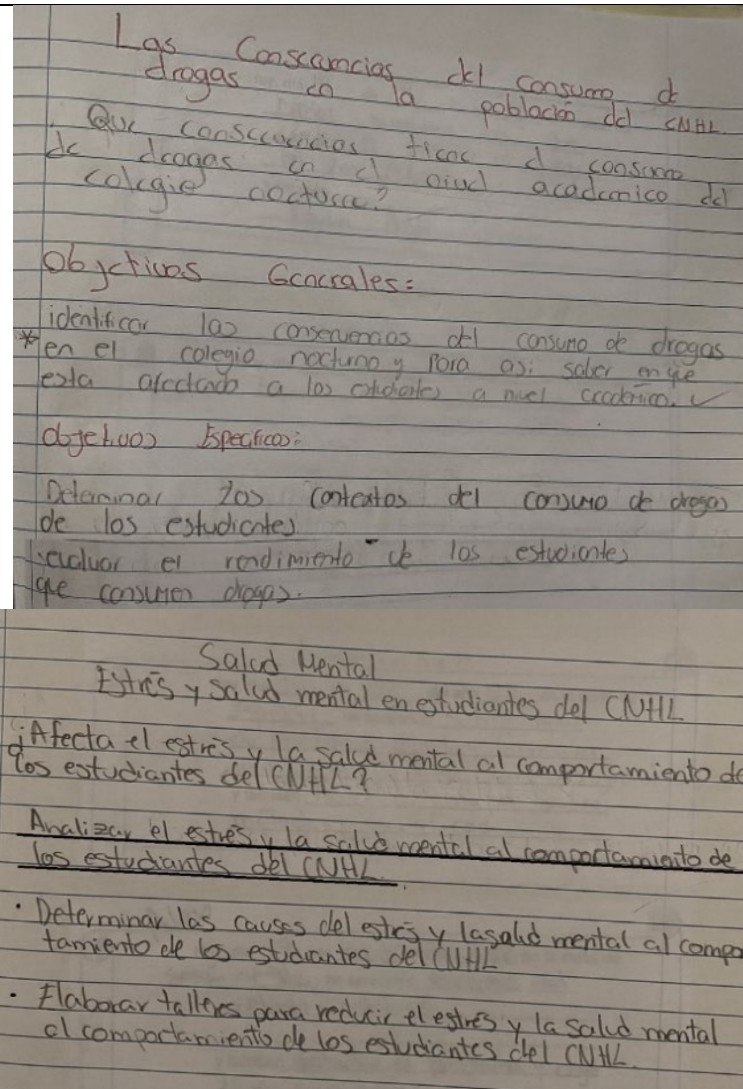 Las Conscuencias del consumo de
drogas en la población del CNHL
¿Que consecuencias tiene el consumo
de drogas en el nivel academico del
colegio nocturno?
Objetivos Generales:
identificar las consecuencias del consumo de drogas
*en el colegio nocturno y Para asi saber en que
esta afectado a los estudiantes a nivel academico. ✓
objetivos Especificos:
Determinar los contextos del consumo de drogas
de los estudiantes
evaluar el rendimiento de los estudiantes
que consumen drogas.
Salud Mental
Estrés y salud mental en estudiantes del CNHL
¿Afecta el estrés y la salud mental al comportamiento de
los estudiantes del CNHL?
Analizar el estrés y la salud mental al comportamiento de
los estudiantes del CNHL.
· Determinar las causas del estrés y la salud mental al compor
tamiento de los estudiantes del CNHL
· Elaborar talleres para reducir el estrés y la salud mental
al comportamiento de los estudiantes del CNHL.